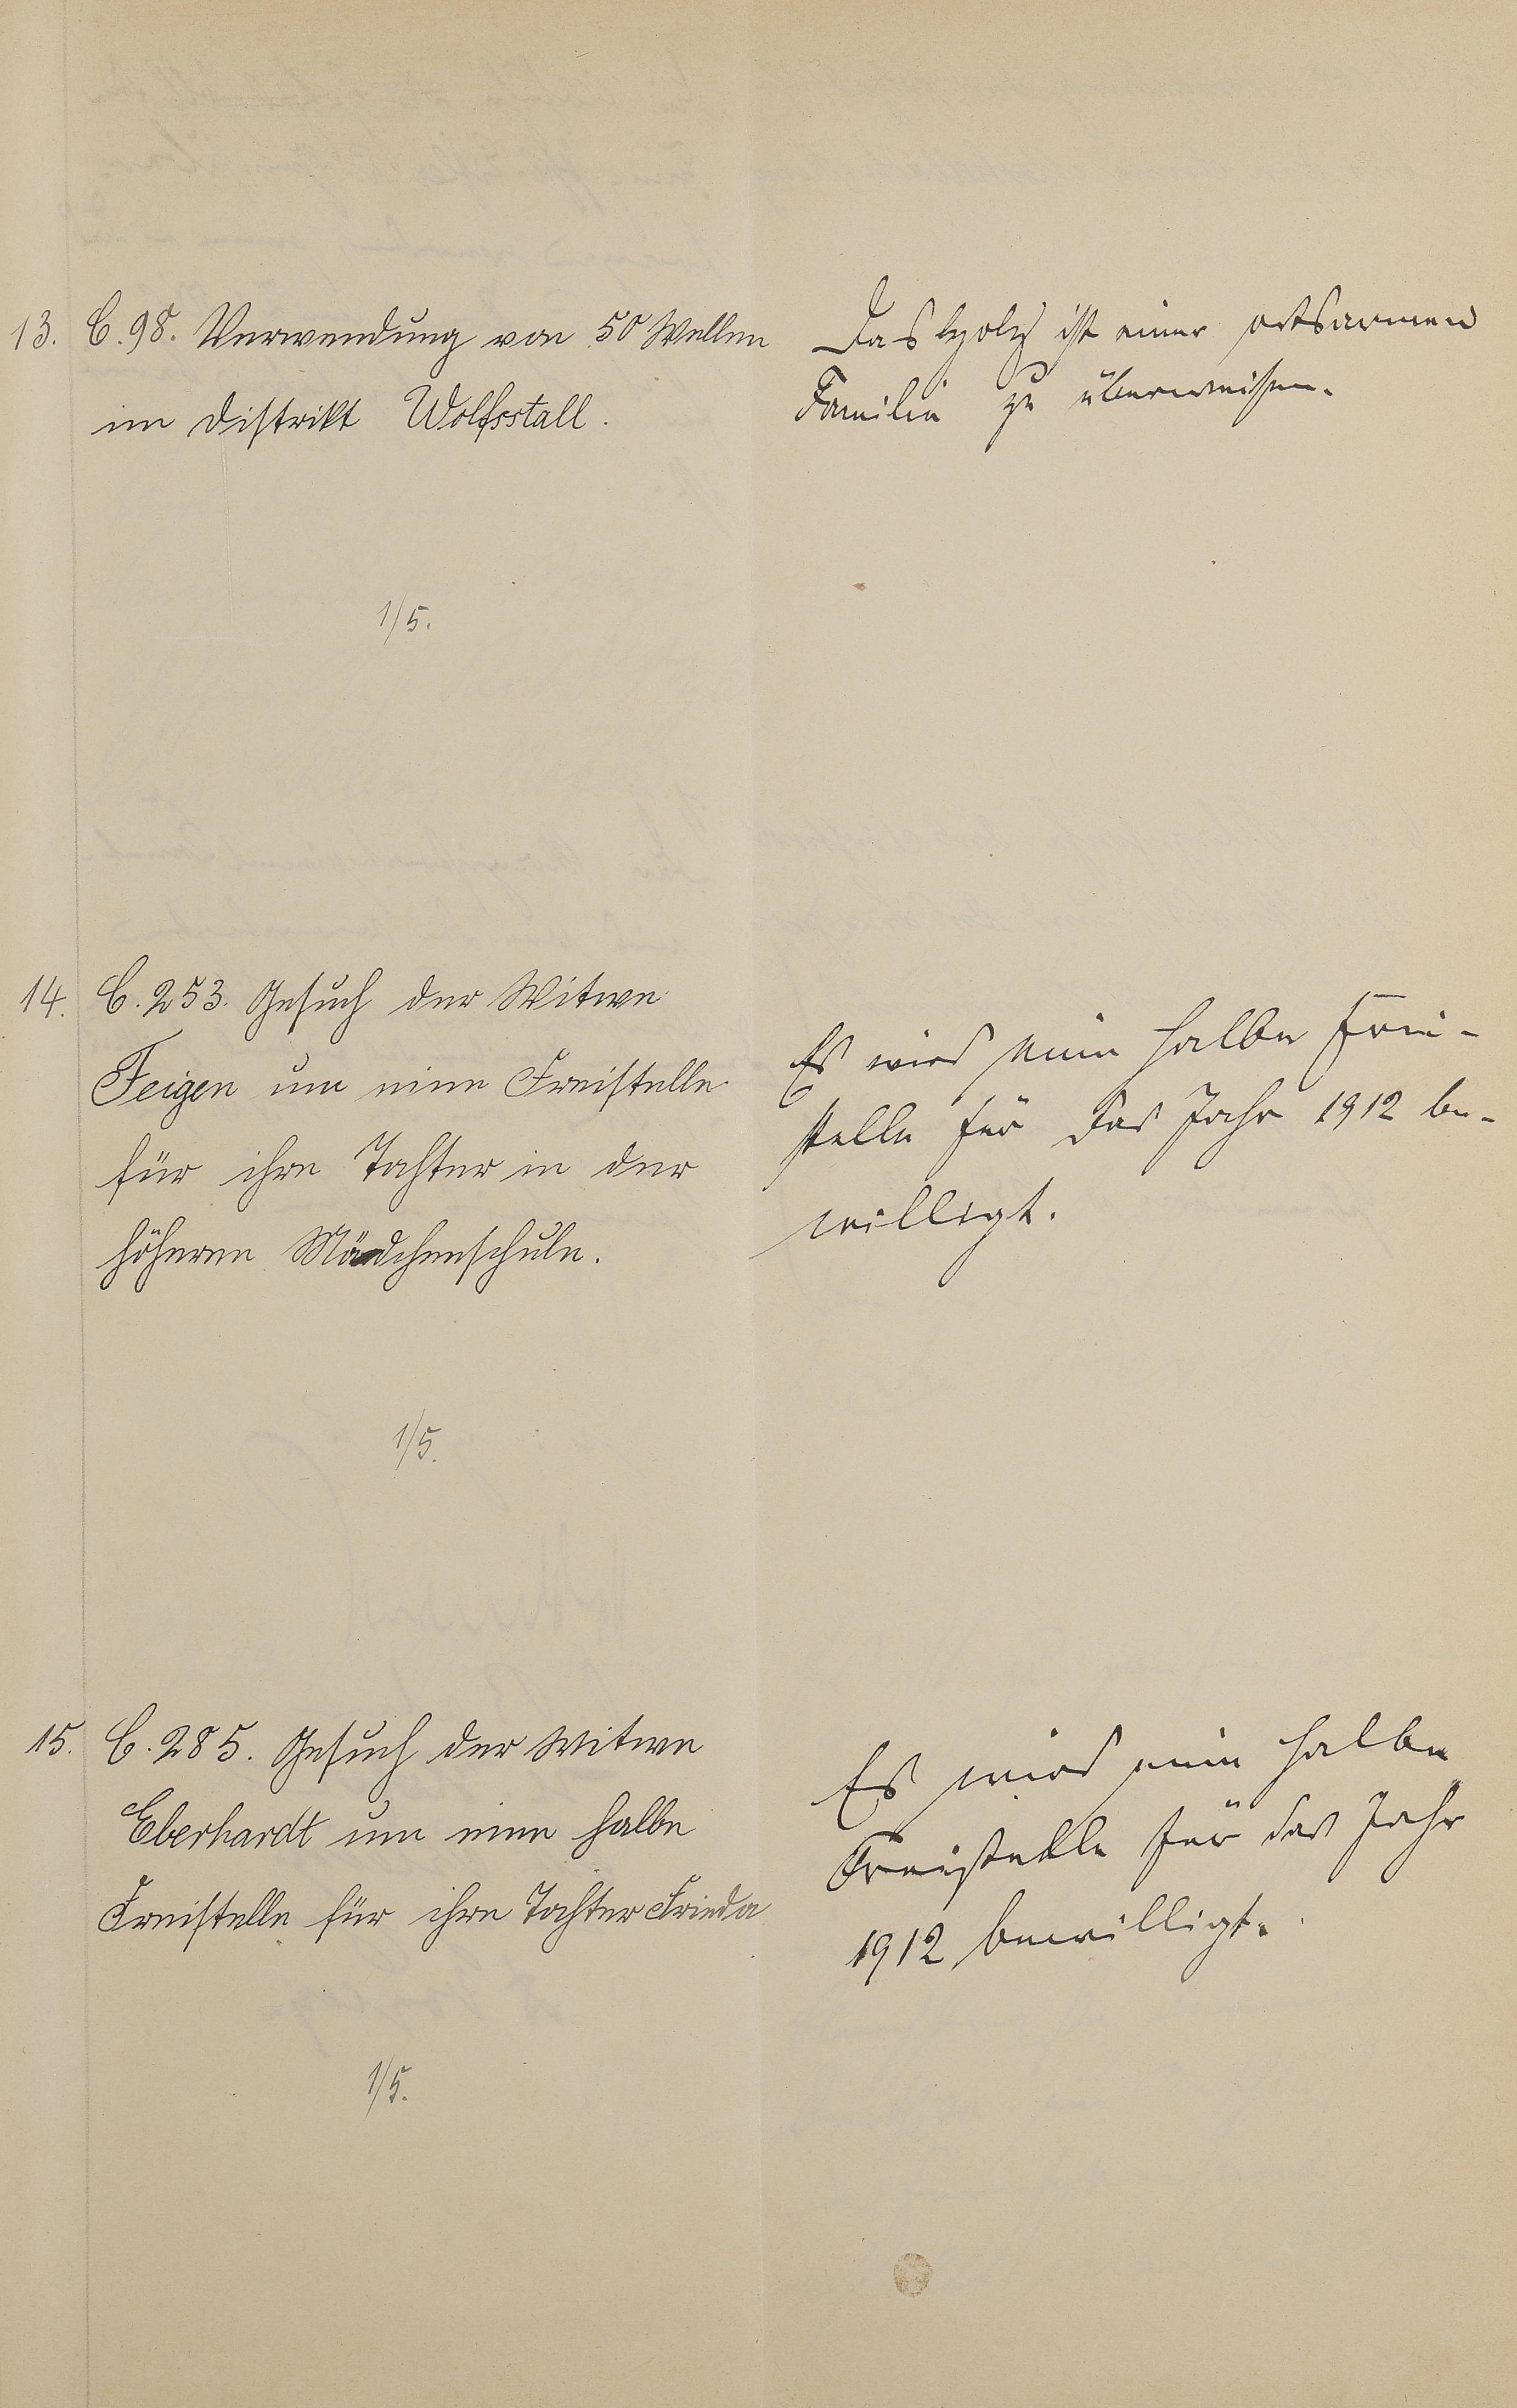 13. C. 98. Verwendung von 50 Wellen
im Distrikt Wolfsstall.
Das Holz ist einer ortsarmen
Familie zu überweisen.
1/5.
14. C. 253. Gesuch der Witwe
Feigen um eine Freistelle
für ihre Tochter in der
höheren Mädchenschule.
Es wird eine halbe Frei-
stelle für das Jahr 1912 be-
willigt.
1/5.
15. C. 285. Gesuch der Witwe
Eberhardt um eine halbe
Freistelle für ihre Tochter Frieda
Es wird eine halbe
Freistelle für das Jahr
1912 bewilligt.
1/5.